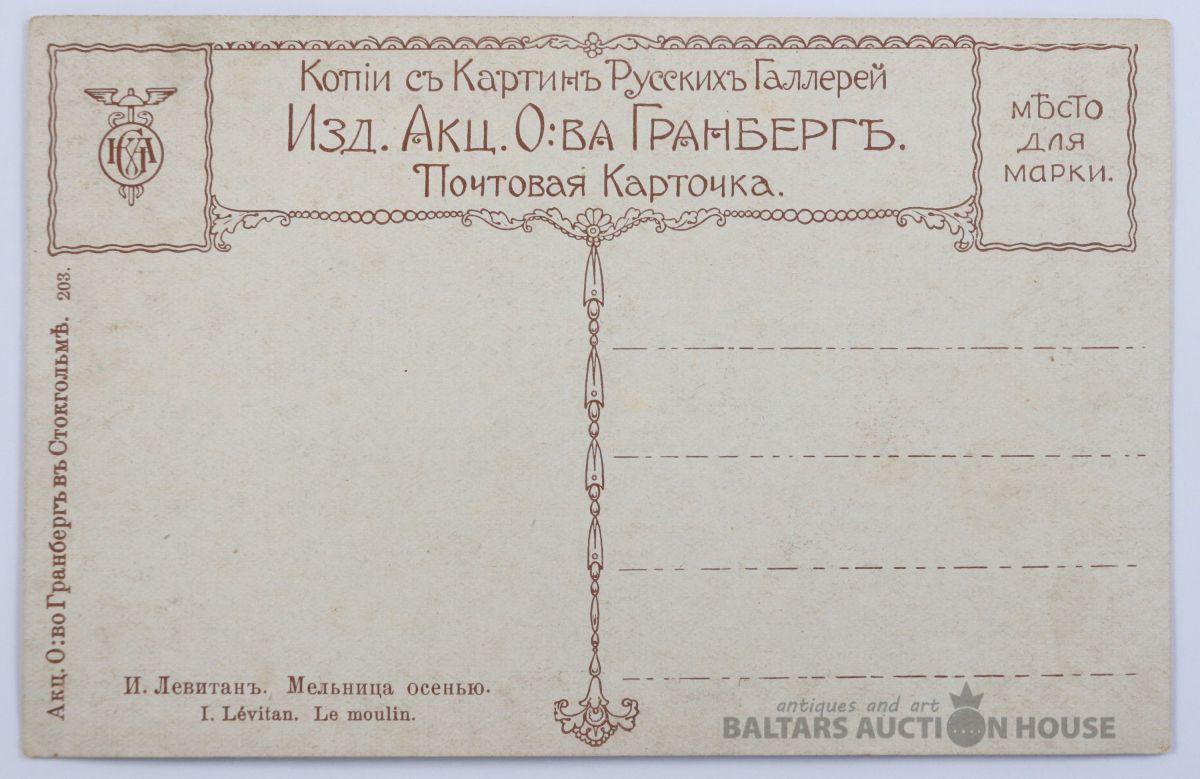 Копіи съ Картинъ Русскихъ Галлерей
Изд. Акц. О:ва Гранбергъ.
Почтовая Карточка.
мѣсто
для
марки.
Акц. О:во Гранбергъ въ Стокгольмѣ. 203.
И. Левитанъ. Мельница осенью.
I. Lévitan. Le moulin.
antiques and art
BALTARS AUCTION HOUSE